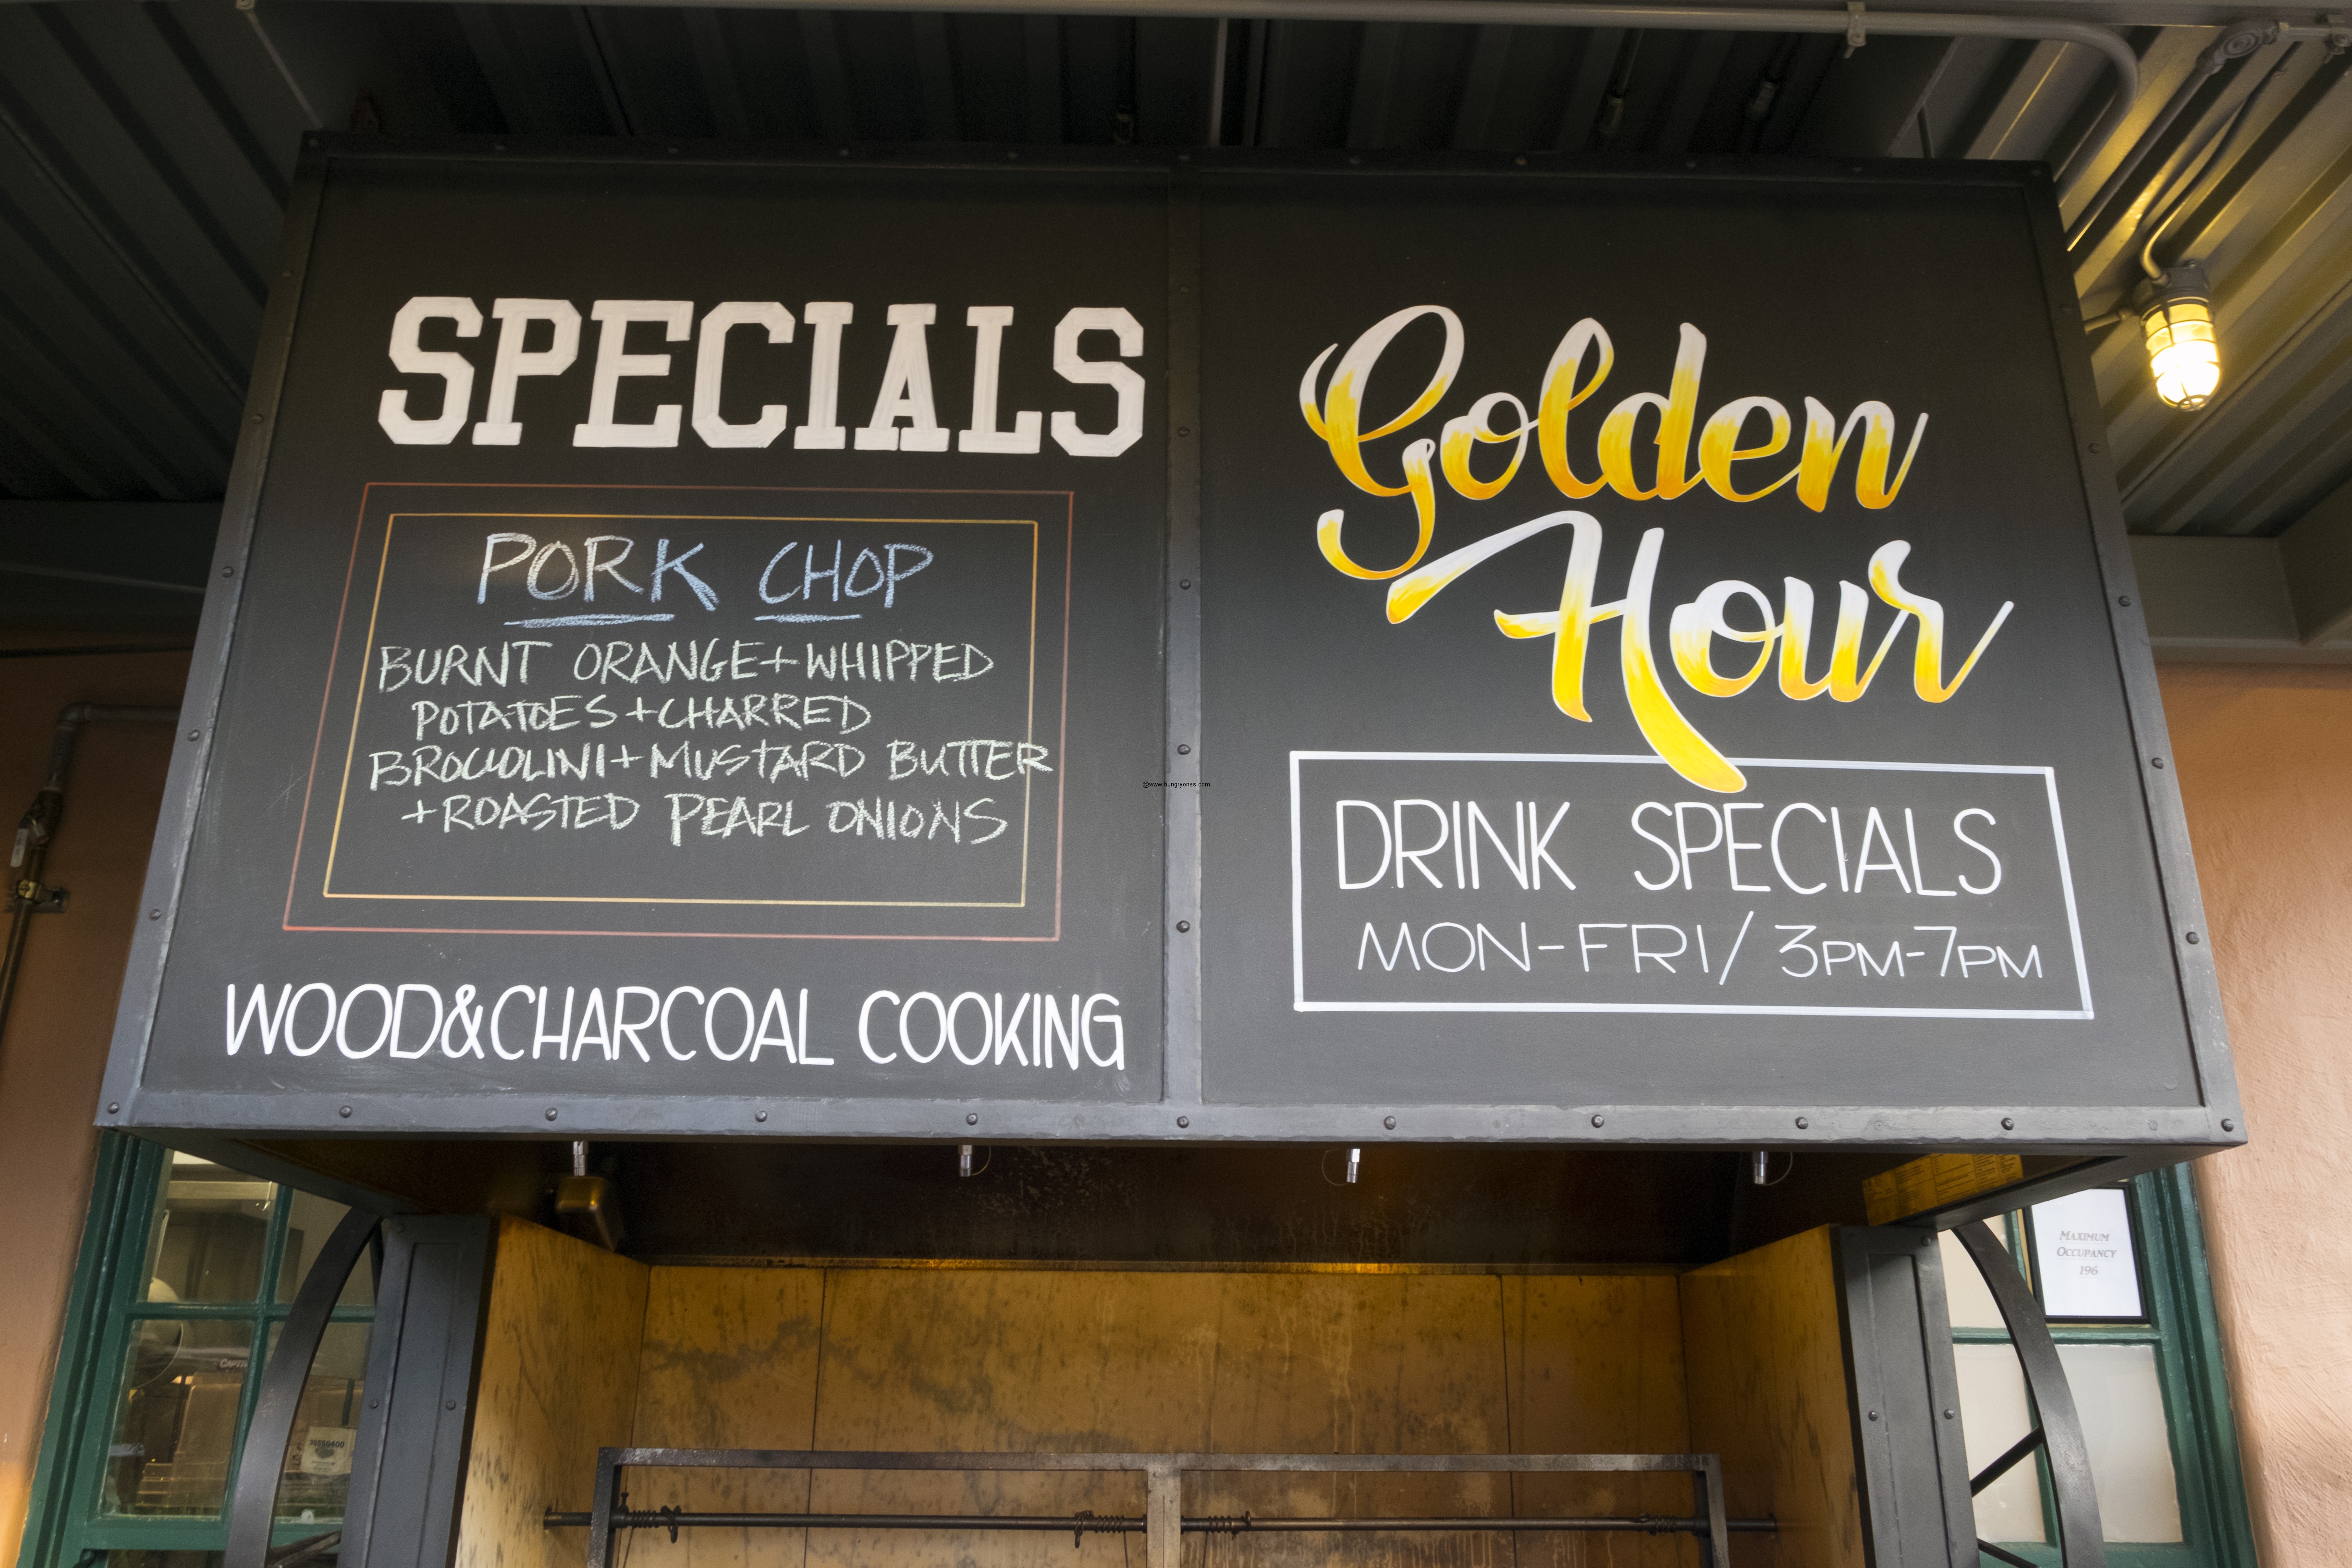 SPECIALS
PORK CHOP
BURNT ORANGE+WHIPPED
POTATOES+CHARRED
BROCCOLINI+MUSTARD BUTTER
+ROASTED PEARL ONIONS
WOOD&CHARCOAL COOKING
Golden
Hour
DRINK SPECIALS
MON-FRI/3PM-7PM
@www.hungryones.com
MAXIMUM
OCCUPANCY
196